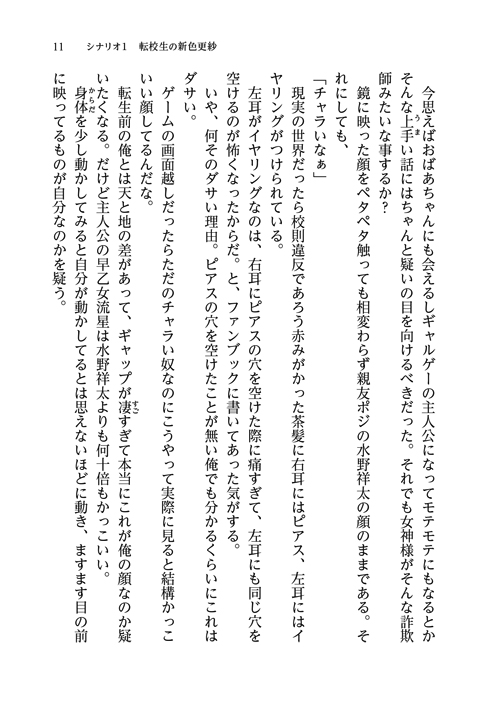 11　シナリオ1　転校生の新色更紗
　今思えばおばあちゃんにも会えるしギャルゲーの主人公になってモテモテにもなるとか
そんな上手い話にはちゃんと疑いの目を向けるべきだった。それでも女神様がそんな詐欺
師みたいな事するか？
　鏡に映った顔をペタペタ触っても相変わらず親友ポジの水野祥太の顔のままである。そ
れにしても、
「チャラいなぁ」
　現実の世界だったら校則違反であろう赤みがかった茶髪に右耳にはピアス、左耳にはイ
ヤリングがつけられている。
　左耳がイヤリングなのは、右耳にピアスの穴を空けた際に痛すぎて、左耳にも同じ穴を
空けるのが怖くなったからだ。と、ファンブックに書いてあった気がする。
　いや、何そのダサい理由。ピアスの穴を空けたことが無い俺でも分かるくらいにこれは
ダサい。
　ゲームの画面越しだったらただのチャラい奴なのにこうやって実際に見ると結構かっこ
いい顔してるんだな。
　転生前の俺とは天と地の差があって、ギャップが凄すぎて本当にこれが俺の顔なのか疑
いたくなる。だけど主人公の早乙女流星は水野祥太よりも何十倍もかっこいい。
　身体を少し動かしてみると自分が動かしてるとは思えないほどに動き、ますます目の前
に映ってるものが自分なのかを疑う。